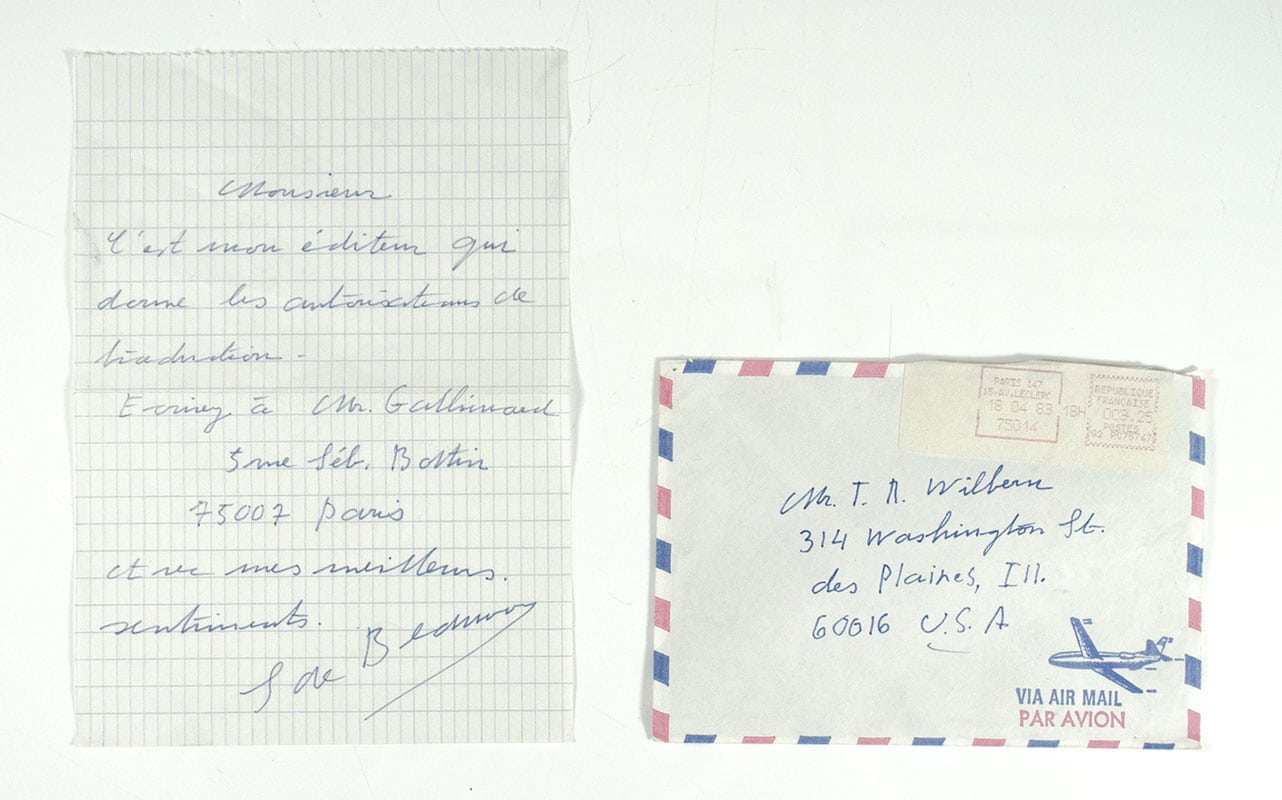 Monsieur
C'est mon éditeur qui
donne les autorisations de
traduction.
Ecrivez à Mr. Gallimard
5 rue Séb. Bottin
75007 Paris
avec mes meilleurs.
sentiments.
S de Beauvoir
PARIS 147
15/AV.LECLERC
18 04 83 18H
75014
REPUBLIQUE
FRANCAISE
003.25
POSTES
Mr. T. R. Wilbern
314 Washington St.
des Plaines, Ill.
60016 U.S.A
VIA AIR MAIL
PAR AVION